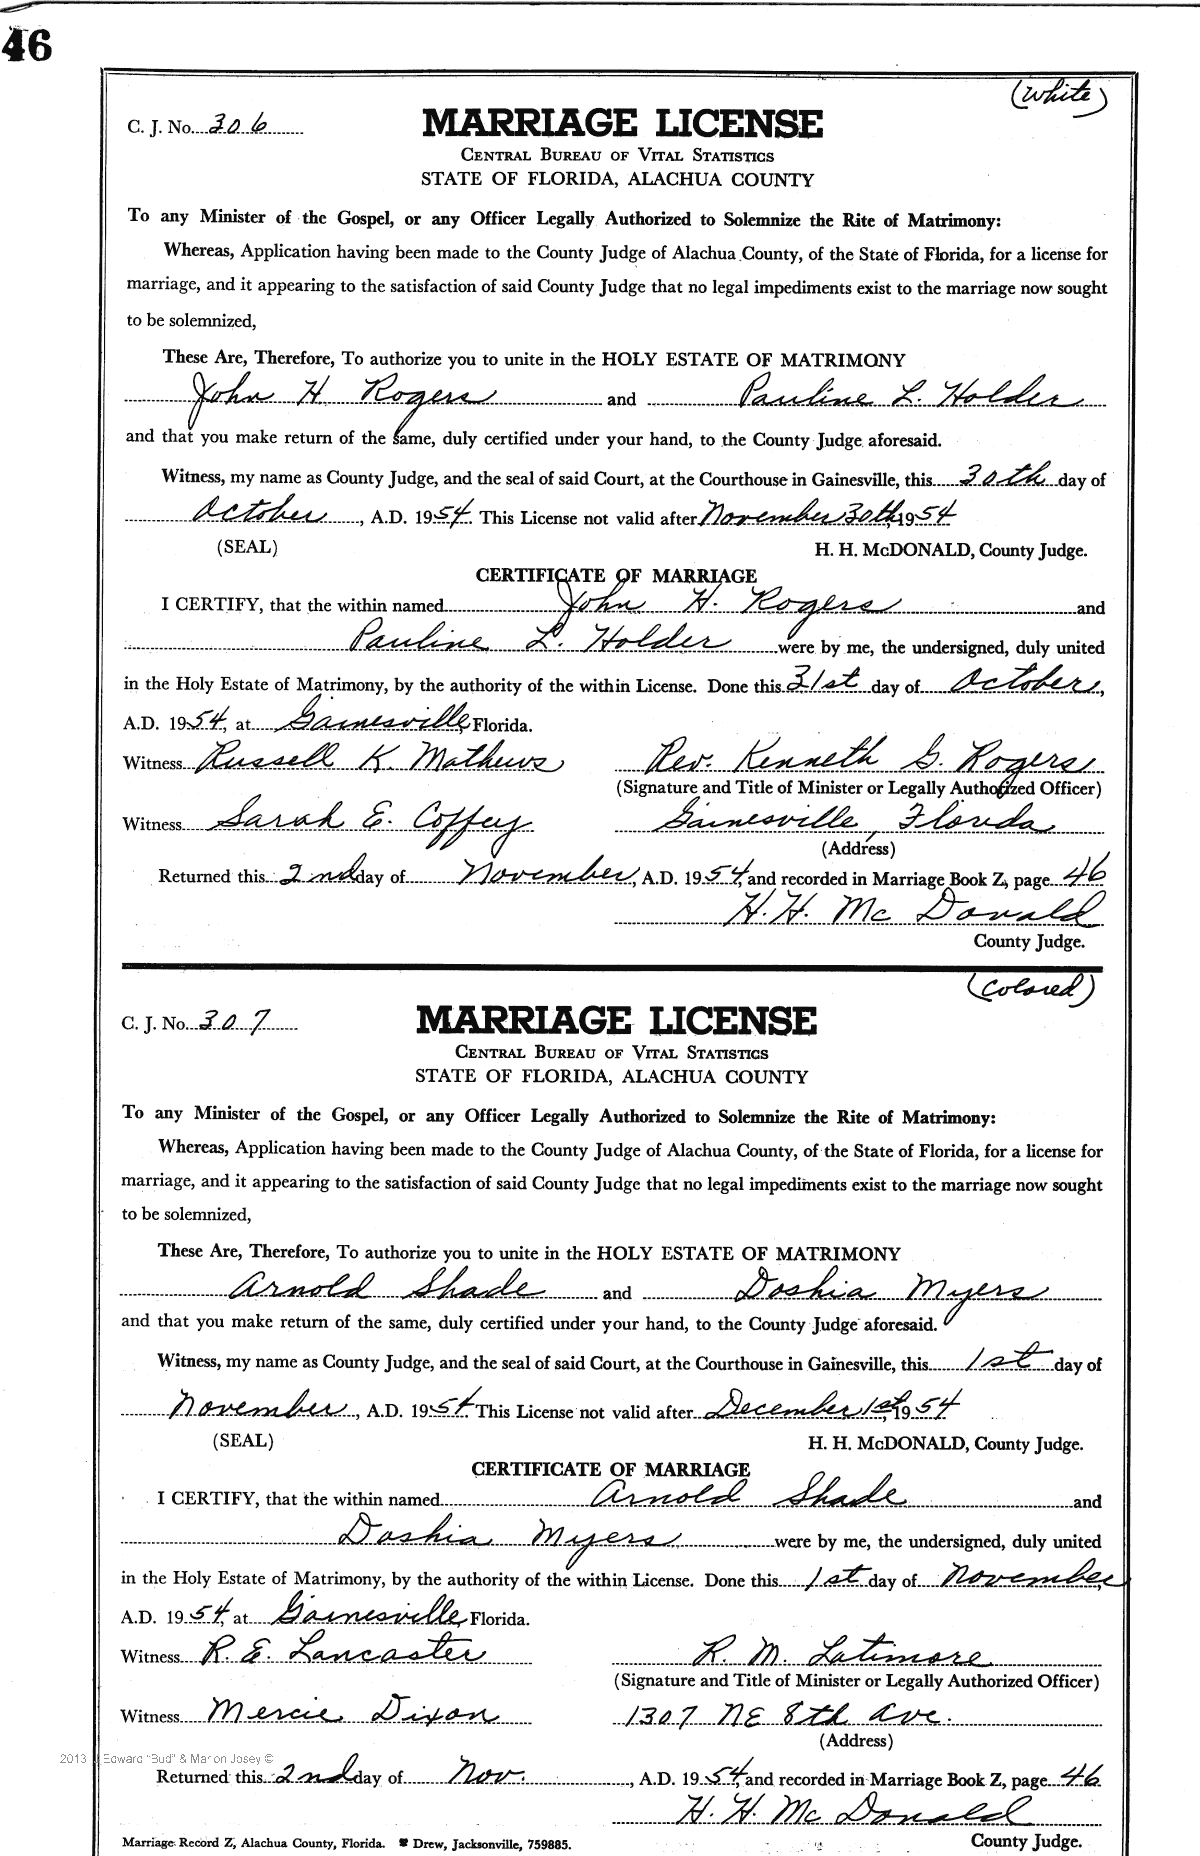 46
(White)
C. J. No. 306
MARRIAGE LICENSE
CENTRAL BUREAU OF VITAL STATISTICS
STATE OF FLORIDA, ALACHUA COUNTY
To any Minister of the Gospel, or any Officer Legally Authorized to Solemnize the Rite of Matrimony:
Whereas, Application having been made to the County Judge of Alachua County, of the State of Florida, for a license for
marriage, and it appearing to the satisfaction of said County Judge that no legal impediments exist to the marriage now sought
to be solemnized,
These Are, Therefore, To authorize you to unite in the HOLY ESTATE OF MATRIMONY
John H Rogers and Pauline L. Holder
and that you make return of the same, duly certified under your hand, to the County Judge aforesaid.
Witness, my name as County Judge, and the seal of said Court, at the Courthouse in Gainesville, this 30th day of
October, A.D. 1954. This License not valid after November 30th, 1954
(SEAL) H. H. McDONALD, County Judge.
CERTIFICATE OF MARRIAGE
I CERTIFY, that the within named John H. Rogers and
Pauline L. Holder were by me, the undersigned, duly united
in the Holy Estate of Matrimony, by the authority of the within License. Done this 31st day of October,
A.D. 1954, at Gainesville, Florida.
Witness Russell K. Mathews Rev. Kenneth G. Rogers
(Signature and Title of Minister or Legally Authorized Officer)
Witness Sarah E. Coffey Gainesville, Florida
(Address)
Returned this 2nd day of November, A.D. 1954, and recorded in Marriage Book Z, page 46
H. H. McDonald
County Judge.
(Colored)
C. J. No. 307
MARRIAGE LICENSE
CENTRAL BUREAU OF VITAL STATISTICS
STATE OF FLORIDA, ALACHUA COUNTY
To any Minister of the Gospel, or any Officer Legally Authorized to Solemnize the Rite of Matrimony:
Whereas, Application having been made to the County Judge of Alachua County, of the State of Florida, for a license for
marriage, and it appearing to the satisfaction of said County Judge that no legal impediments exist to the marriage now sought
to be solemnized,
These Are, Therefore, To authorize you to unite in the HOLY ESTATE OF MATRIMONY
Arnold Shade and Doshia Myers
and that you make return of the same, duly certified under your hand, to the County Judge aforesaid.
Witness, my name as County Judge, and the seal of said Court, at the Courthouse in Gainesville, this 1st day of
November, A.D. 1954. This License not valid after December 1st, 1954
(SEAL) H. H. McDONALD, County Judge.
CERTIFICATE OF MARRIAGE
I CERTIFY, that the within named Arnold Shade and
Doshia Myers were by me, the undersigned, duly united
in the Holy Estate of Matrimony, by the authority of the within License. Done this 1st day of November,
A.D. 1954, at Gainesville, Florida.
Witness R. E. Lancaster R. M. Latimore
(Signature and Title of Minister or Legally Authorized Officer)
Witness Mercie Dixon 1307 NE 8th Ave.
(Address)
2013 J Edward "Bud" & Marion Josey ©
Returned this 2nd day of Nov., A.D. 1954, and recorded in Marriage Book Z, page 46
H. H. McDonald
Marriage Record Z, Alachua County, Florida. Drew, Jacksonville, 759885. County Judge.